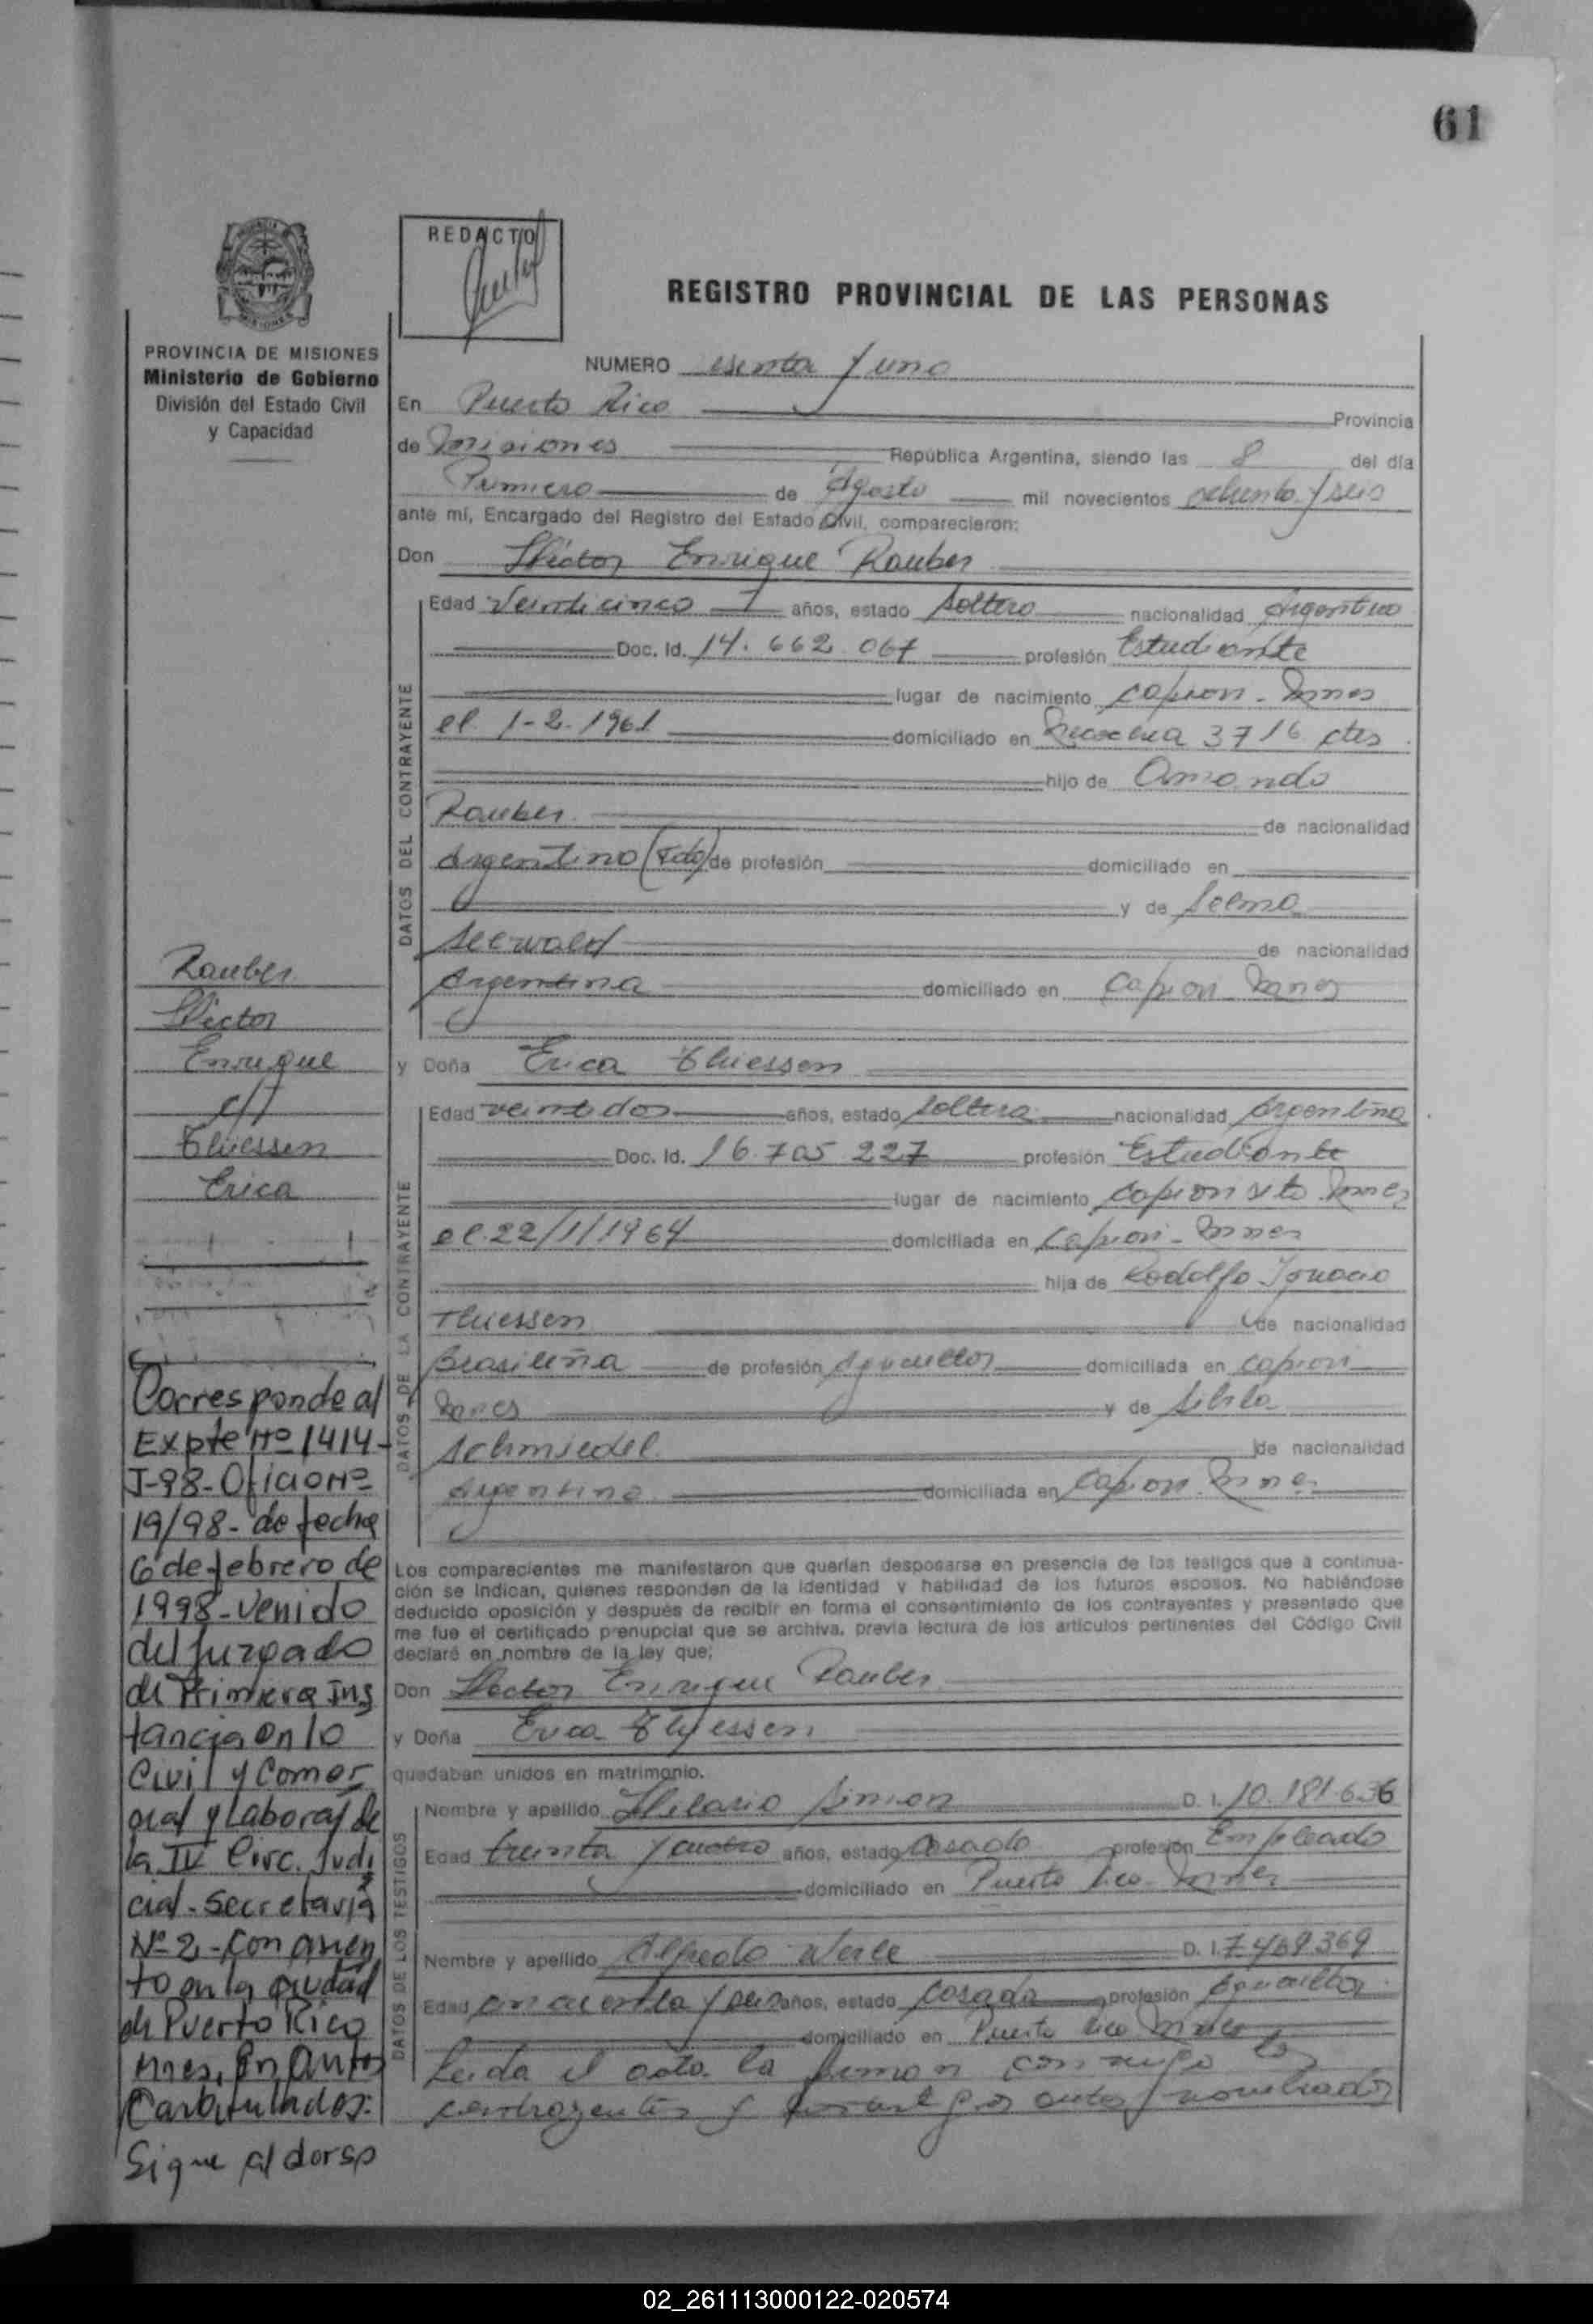 61
REDACTO
REGISTRO PROVINCIAL DE LAS PERSONAS
PROVINCIA DE MISIONES
Ministerio de Gobierno
División del Estado Civil
y Capacidad
NUMERO esenta y uno
En Puerto Rico Provincia
de Misiones República Argentina, siendo las 8 del día
Primero de Agosto mil novecientos ochenta y seis
ante mí, Encargado del Registro del Estado Civil, comparecieron:
Don Héctor Enrique Rauber
DATOS DEL CONTRAYENTE
Edad Veinticinco años, estado soltero nacionalidad Argentino
Doc. Id. 14.662.067 profesión Estudiante
lugar de nacimiento Capiovi - Mnes
el 1-2-1961 domiciliado en 3716 ctes
hijo de Amando
Rauber de nacionalidad
Argentino (Fdo) de profesión domiciliado en
y de Selma
Seewald de nacionalidad
Argentina domiciliado en Capiovi Mnes
Rauber
Héctor
Enrique
c/
Thiessen
Erica
y Doña Erica Thiessen
DATOS DE LA CONTRAYENTE
Edad veintidos años, estado soltera nacionalidad Argentina
Doc. Id. 16.705.227 profesión Estudiante
lugar de nacimiento Capiovisito Mnes
el 22/1/1964 domiciliada en Capiovi - Mnes
hija de Rodolfo Ignacio
Thiessen de nacionalidad
Brasileña de profesión Agricultor domiciliada en Capiovi
Mnes y de Sibila
Schmiedel de nacionalidad
Argentina domiciliada en Capiovi Mnes
Los comparecientes me manifestaron que querían desposarse en presencia de los testigos que a continua-
ción se indican, quienes responden de la identidad y habilidad de los futuros esposos. No habiéndose
deducido oposición y después de recibir en forma el consentimiento de los contrayentes y presentado que
me fue el certificado prenupcial que se archiva, previa lectura de los artículos pertinentes del Código Civil
declaré en nombre de la ley que;
Don Héctor Enrique Rauber
y Doña Erica Thyessen
quedaban unidos en matrimonio.
DATOS DE LOS TESTIGOS
Nombre y apellido Hilario Simon D. I. 10.181.636
Edad treinta y cuatro años, estado Casado profesión Empleado
domiciliado en Puerto Rico - Mnes
Nombre y apellido Alfredo Werle D. I. 7.469.369
Edad cincuenta y seis años, estado Casado profesión Agricultor
domiciliado en Puerto Rico Mnes
Leida el acta la firman conmigo los
contrayentes y testigos antes nombrados
Corresponde al
Expte Nº 1414-
J-98-Oficio Nº
19/98- de fecha
6 de febrero de
1998-venido
del Juzgado
de Primera Ins
tancia en lo
Civil y Comer
cial y Laboral de
la IV Circ. Judi
cial - Secretaria
Nº 2 - Con asien
to en la ciudad
de Puerto Rico
Mnes. En Autos
Caratulados:
Sigue al dorso
02_261113000122-020574